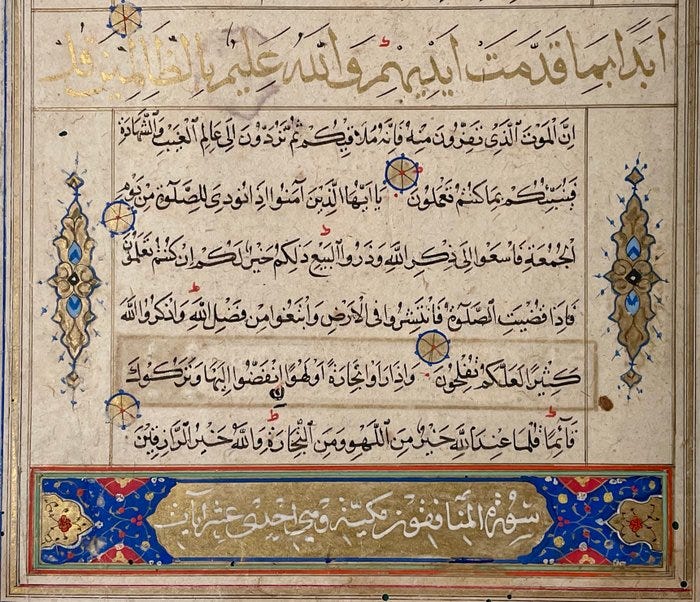 اَبَدًا بِمَا قَدَّمَتْ اَيْدِيهِمْ وَاللّٰهُ عَلِيمٌ بِالظَّالِمِينَ قُلْ
اِنَّ الْمَوْتَ الَّذِي تَفِرُّونَ مِنْهُ فَاِنَّهُ مُلَاقِيكُمْ ثُمَّ تُرَدُّونَ اِلَى عَالِمِ الْغَيْبِ وَالشَّهَادَةِ
فَيُنَبِّئُكُمْ بِمَا كُنْتُمْ تَعْمَلُونَ يَا اَيُّهَا الَّذِينَ آمَنُوا اِذَا نُودِيَ لِلصَّلٰوةِ مِنْ يَوْمِ
الْجُمُعَةِ فَاسْعَوْا اِلَى ذِكْرِ اللّٰهِ وَذَرُوا الْبَيْعَ ذٰلِكُمْ خَيْرٌ لَكُمْ اِنْ كُنْتُمْ تَعْلَمُونَ
فَاِذَا قُضِيَتِ الصَّلٰوةُ فَانْتَشِرُوا فِي الْاَرْضِ وَابْتَغُوا مِنْ فَضْلِ اللّٰهِ وَاذْكُرُوا اللّٰهَ
كَثِيرًا لَعَلَّكُمْ تُفْلِحُونَ وَاِذَا رَاَوْا تِجَارَةً اَوْ لَهْوًا انْفَضُّوا اِلَيْهَا وَتَرَكُوكَ
قَآئِمًا قُلْ مَا عِنْدَ اللّٰهِ خَيْرٌ مِنَ اللَّهْوِ وَمِنَ التِّجَارَةِ وَاللّٰهُ خَيْرُ الرَّازِقِينَ
سُورَةُ الْمُنَافِقُونَ مَكِّيَّةٌ وَهِيَ اِحْدَى عَشَرَ آيَاتٍ